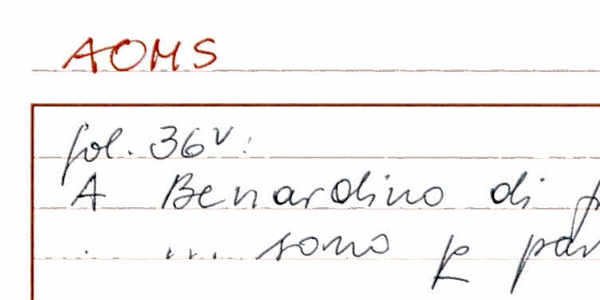 AOMS
fol. 36v:
A Benardino di
... sono